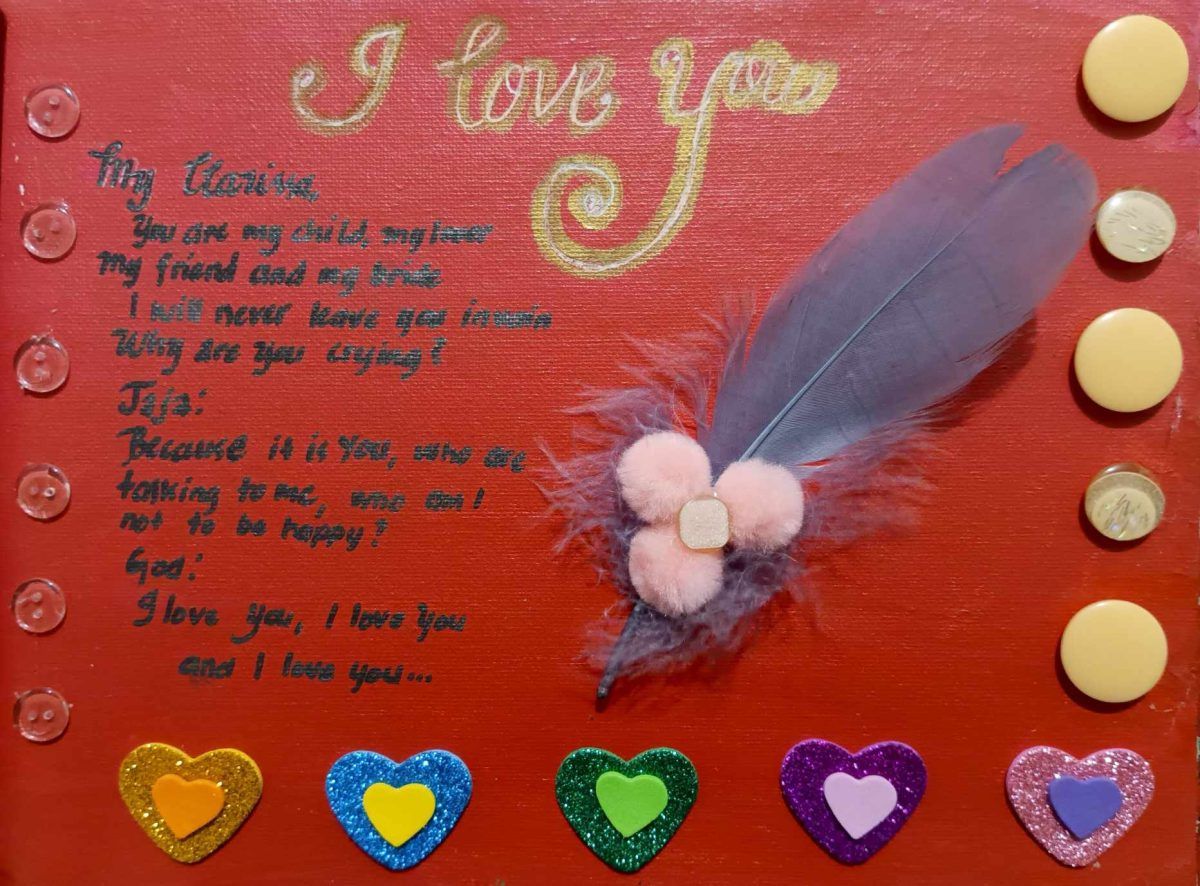 I love you
My Clarissa,
You are my child, my lover
My friend and my bride
I will never leave you in vain
Why are you crying?
Jaja:
Because it is You, who are
talking to me, who am I
not to be happy?
God:
I love you, I love you
and I love you...